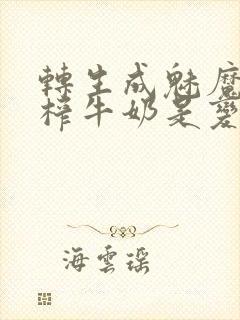 轉生成魅魔
榨牛奶是愛
海雲瑤